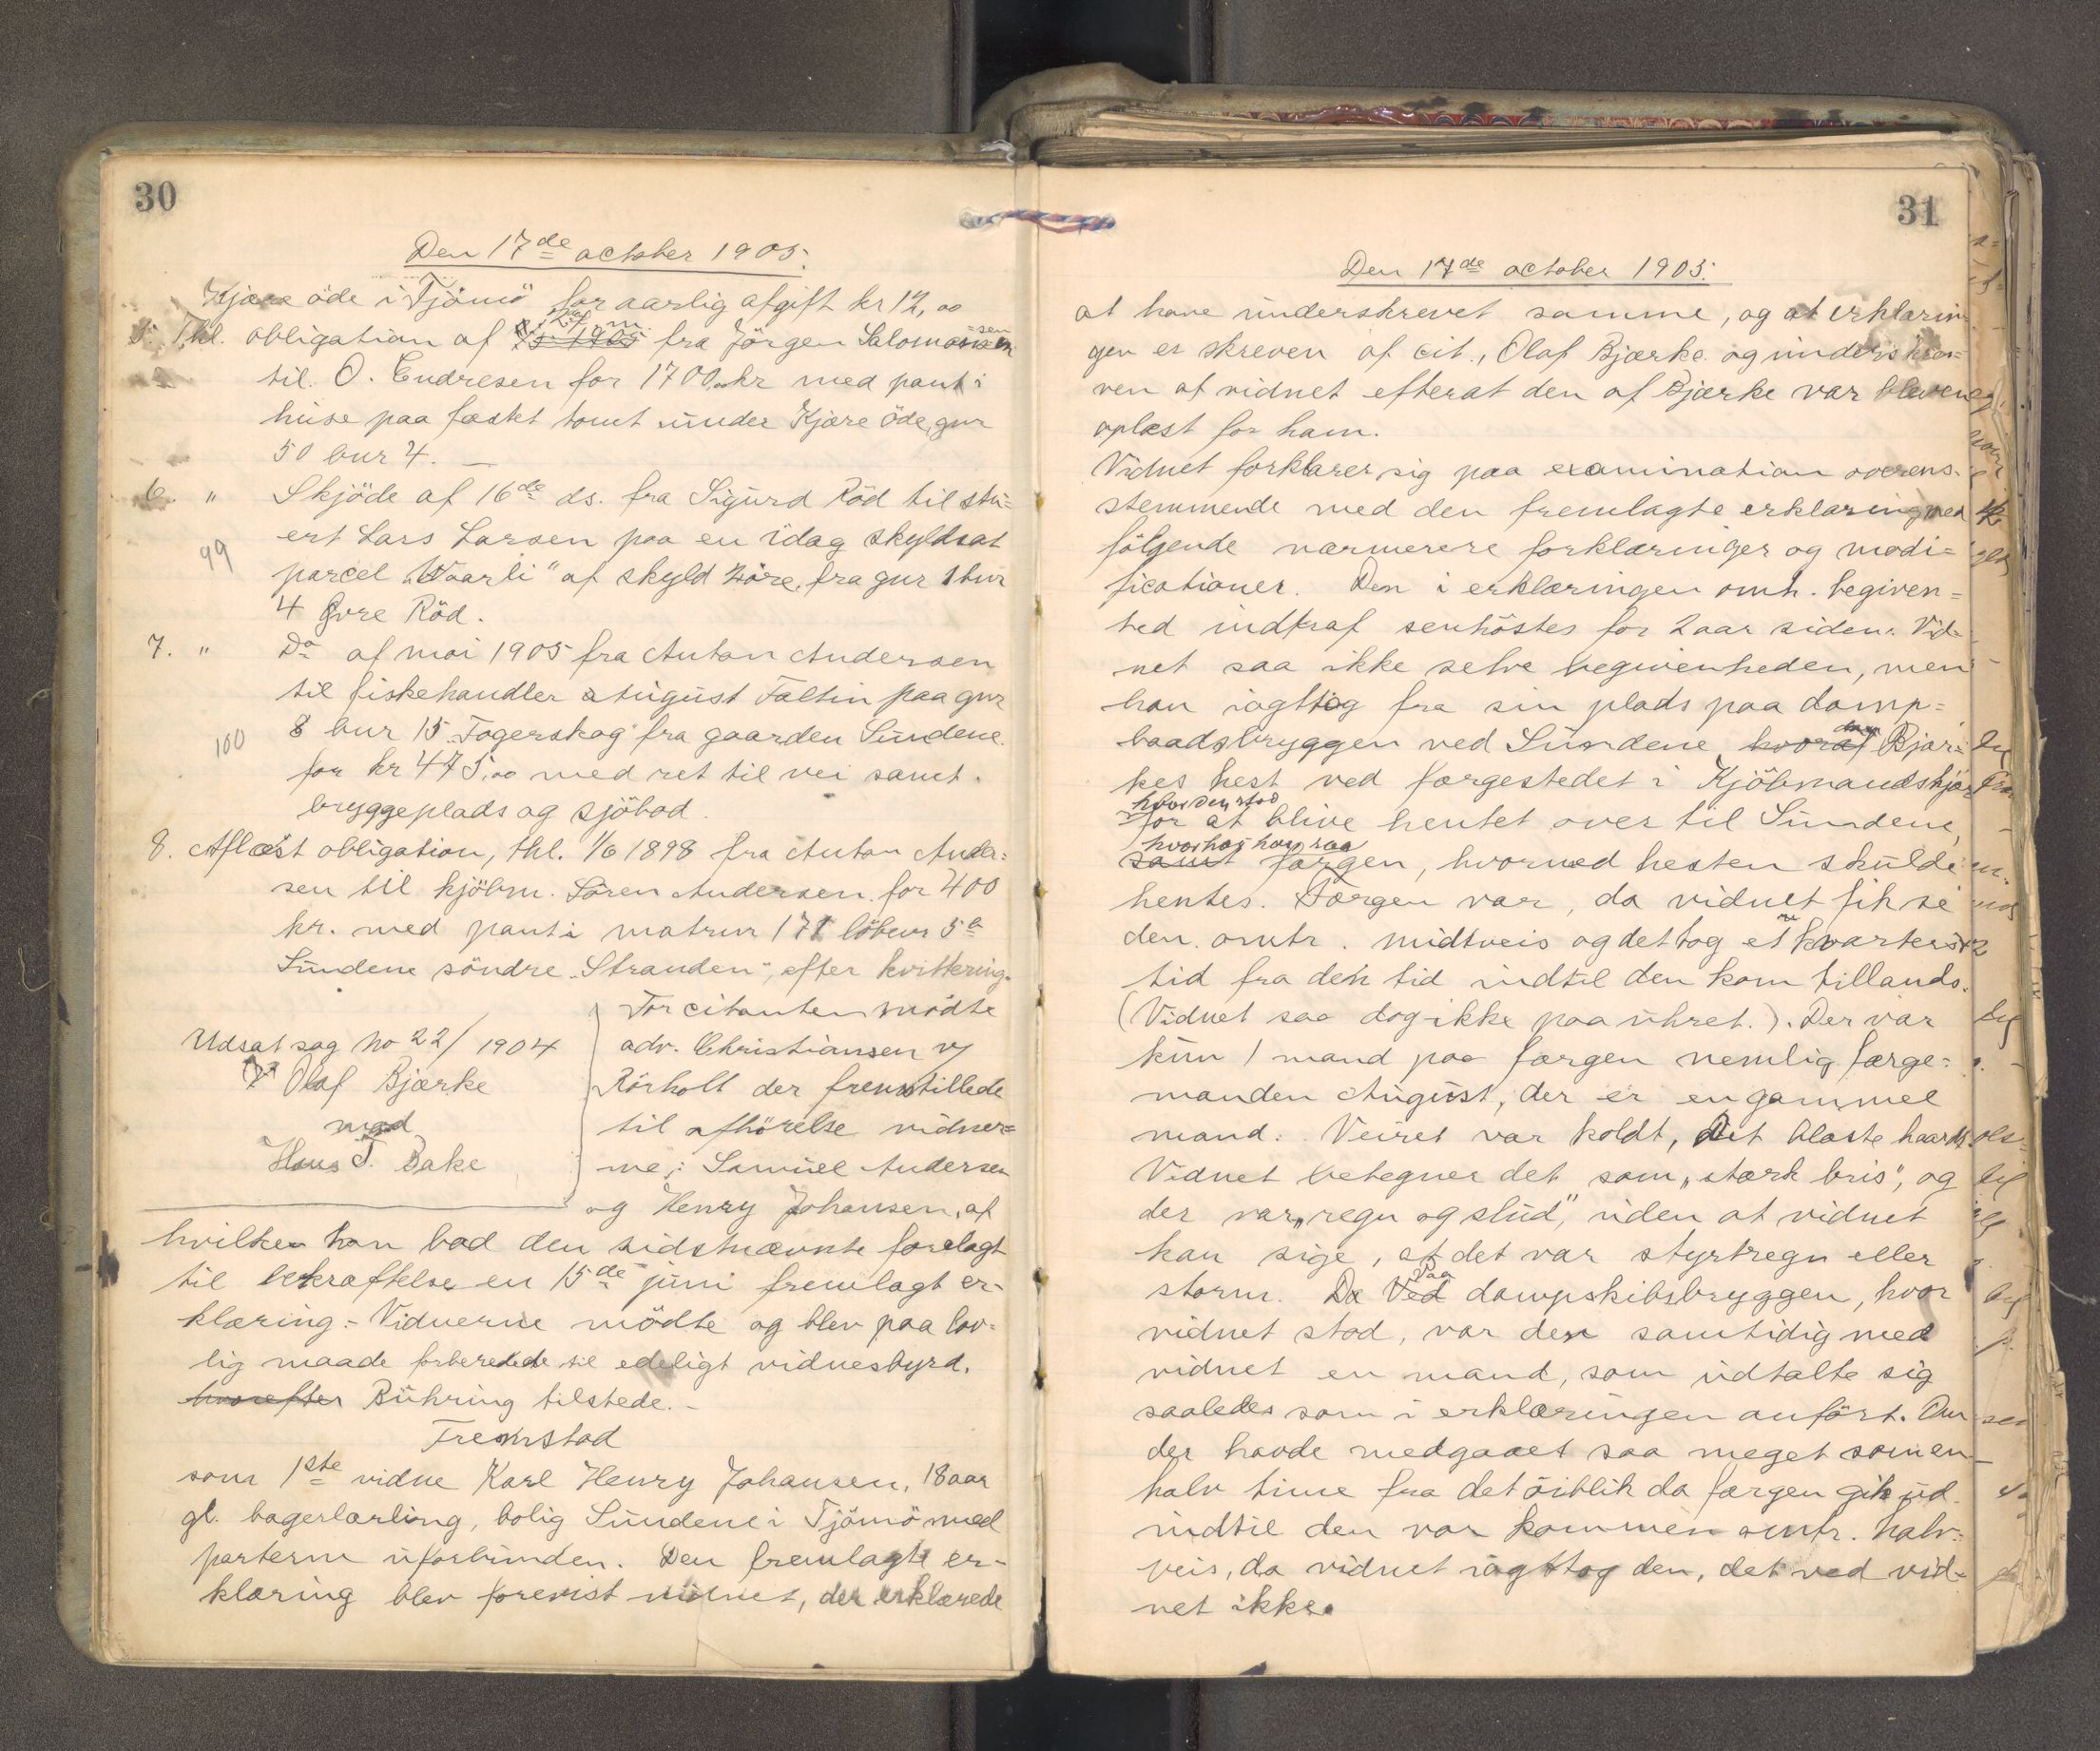 30
Den 17de october 1905.
Kjære öde i Tjömö for aarlig afgift kr 12,00
5. Thl. obligation af fra Jörgen Salomonsen
til O. Endresen for 1700 kr med pant i
huse paa fæstet tomt under Kjære öde, gnr
50 bnr 4. —
6. " Skjöde af 16de ds. fra Sigurd Röd til stu=
ert Lars Larsen paa en idag skyldsat
99
parcel „Vaarli" af skyld öre, fra gnr 1 bnr
4 Övre Röd.
7. " Do af mai 1905 fra Anton Andersen
til fiskehandler August Faltin paa gnr
100
8 bnr 15 „Fagerskog" fra gaarden Sundene
for kr 475,00 med ret til vei samt
bryggeplads og sjöbod.
8. Aflæst obligation, thl. 1/6 1898 fra Anton Ander=
sen til kjöbm. Sören Andersen for 400
kr. med pant i matrnr 171 löbenr 5a
Sundene söndre „Stranden", efter kvittering.
Udsat sag No 22/1904
Olaf Bjærke
mod
Hans T. Bake
For citanten mödte
adv. Christiansen v/
Rörholt der fremstillede
til afhörelse vidner=
ne: Samuel Andersen
og Henry Johansen, af
hvilke han bad den sidstnævnte forelagt
til bekræftelse en 15de juni fremlagt er-
klæring.- Vidnerne mödte og blev paa lov-
lig maade forberedede til edeligt vidnesbyrd.
hvorefter Bühring tilstede.-
Fremstod
som 1ste vidne Karl Henry Johansen, 18 aar
gl. bagerlærling, bolig Sundene i Tjömö med
parterne uforbunden. Den fremlagte er-
klæring blev forevist vidnet, der erklærede
31
Den 17de october 1905.
at have underskrevet samme, og at erklærin
gen er skreven af cit., Olaf Bjærke og underskre=
ven af vidnet efterat den af Bjærke var bleven
oplæst for ham.
Vidnet forklarer sig paa examination overens-
stemmende med den fremlagte erklæring med
fölgende nærmere forklaringer og modi=
ficationer. Den i erklæringen omh. begiven=
hed indtraf senhöstes for 2 aar siden. Vid-
net saa ikke selve begivenheden, men
han iagttog fra sin plads paa damp=
baadsbryggen ved Sundene, hvoraf Bjær=
kes hest ved færgestedet i Kjöbmandskjær
hvor den stod
for at blive hentet over til Sundene,
hvorhos han saa
samt færgen, hvormed hesten skulde
hentes. Færgen var, da vidnet fik se
den omtr. midtveis og det tog et kvarters
tid fra den tid indtil den kom tillands.
(Vidnet saa dog ikke paa uhret.). Der var
kun 1 mand paa færgen nemlig færge=
manden August, der er en gammel
mand. Veiret var koldt, Det blæste haardt
Vidnet betegner det som „stærk bris", og
der var „regn og slud", uden at vidnet
kan sige, at det var styrtregn eller
storm. Da Ved dampskibsbryggen, hvor
Paa
vidnet stod, var der samtidig med
vidnet en mand, som udtalte sig
saaledes som i erklæringen anfört. Om
der havde medgaaet saa meget som en
halv time fra det öiblik da færgen gik ud
indtil den var kommen omtr. halv=
veis, da vidnet iagttog den, det ved vid-
net ikke.